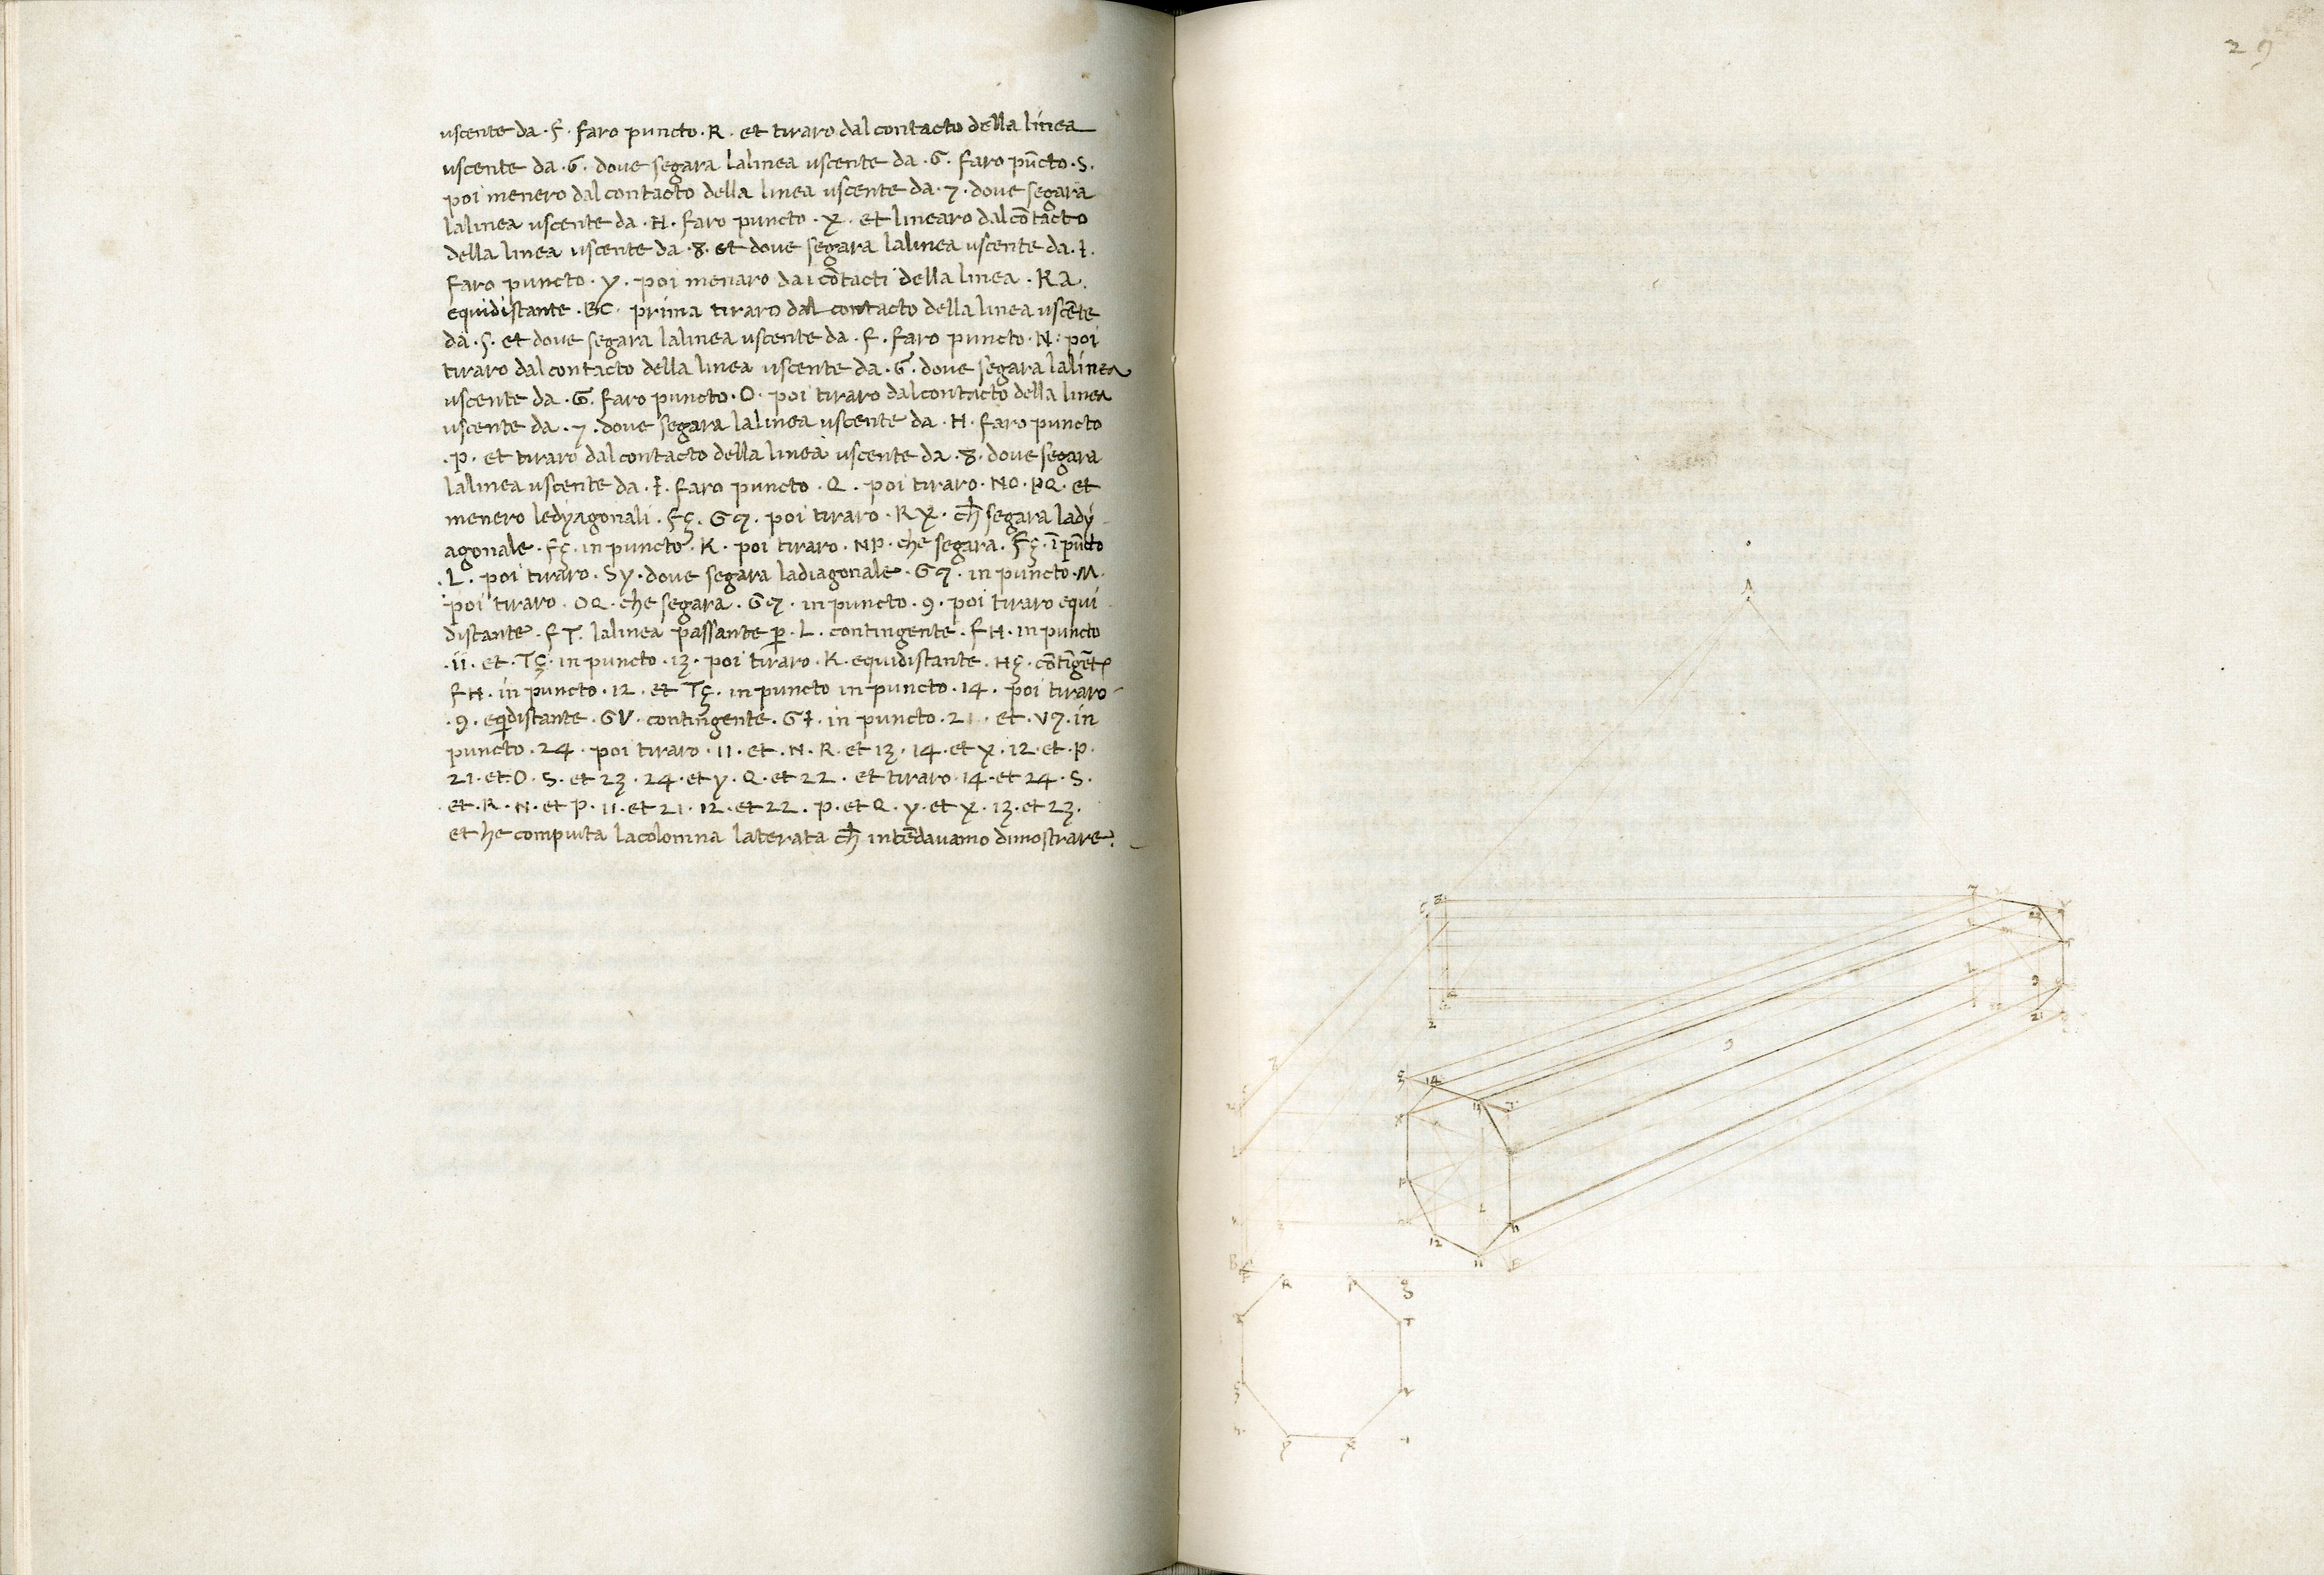 uscente da .5. faro puncto .R. et tiraro dal contacto della linea
uscente da .6. dove segara lalinea uscente da .G. faro pūcto .S.
poi menero dal contacto della linea uscente da .7. dove segara
lalinea uscente da .H. faro puncto .X. et linearo dal cōtacto
della linea uscente da .8. et dove segara lalinea uscente da .I.
faro puncto .y. poi menaro dai cōtacti della linea .KA.
equidistante .BC. prima tiraro dal contacto della linea uscēte
da .5. et dove segara lalinea uscente da .F. faro puncto .N. poi
tiraro dal contacto della linea uscente da .6. dove segara lalinea
uscente da .G. faro puncto .O. poi tiraro dal contacto della linea
uscente da .7. dove segara lalinea uscente da .H. faro puncto
.P. et tiraro dal contacto della linea uscente da .8. dove segara
lalinea uscente da .I. faro puncto .Q. poi tiraro .NO.PQ. et
menero ledyagonali .Fç. G7. poi tiraro .RX. ch̄ segara lady
agonale .Fç. in puncto .K. poi tiraro .NP. che segara .Fç. ī pūcto
.L. poi tiraro .Sy. dove segara ladiagonale .G7. in puncto .M.
poi tiraro .OQ. che segara .G7. in puncto .9. poi tiraro equi
distante .FT. lalinea passante p̄ .L. contingente .FH. in puncto
.11. et .Tç. in puncto .13. poi tiraro .K. equidistante .Hç. cōtīgēte
FH. in puncto .12. et Tç. in puncto in puncto .14. poi tiraro
.9. eqidistante .GV. contingente .GI. in puncto .21. et .V7. in
puncto .24. poi tiraro .11. et .N.R. et 13.14. et X.12. et .P.
21. et O.S. et 23.24. et y.Q. et 22. et tiraro .14. et 24.S.
et .R.N. et P.11. et 21.12. et 22. P. et Q. y. et X. 13. et 23.
et he compiuta lacolonna laterata ch̄ intēdavamo dimostrare.
29
A
14
12
11
9